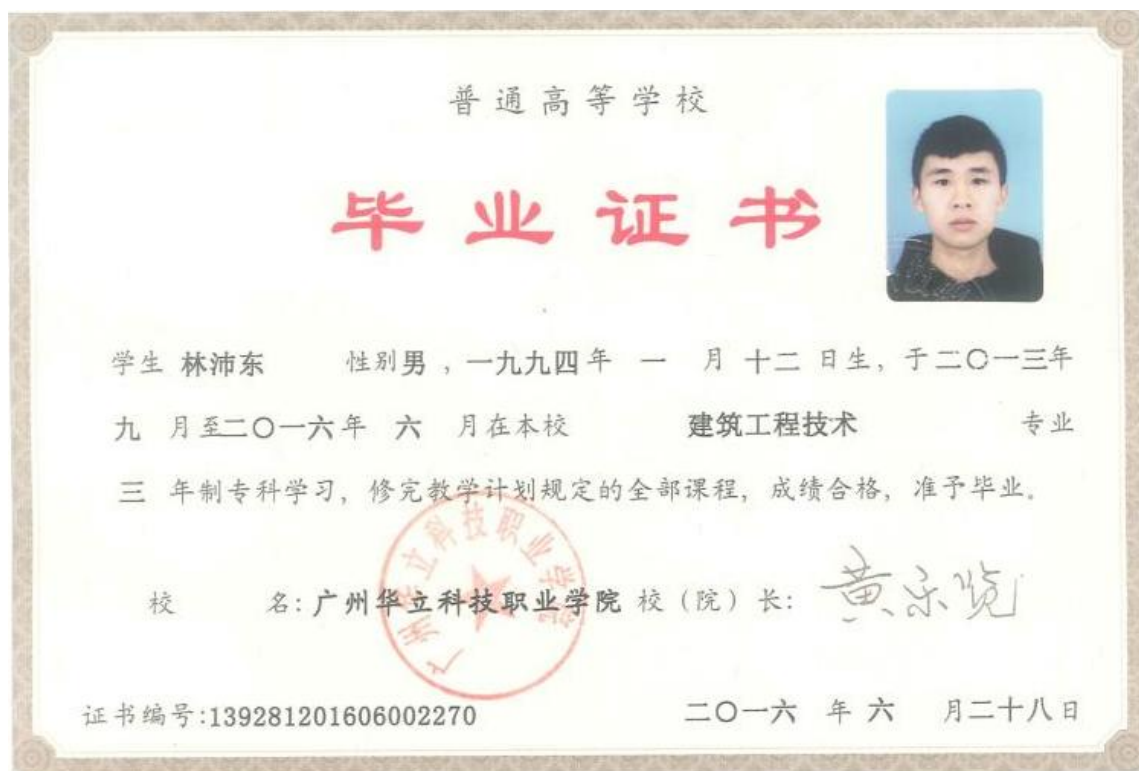 普通高等学校
毕业证书
学生 林沛东 性别男，一九九四年 一 月 十二 日生，于二〇一三年
九 月至二〇一六年 六 月在本校 建筑工程技术 专业
三 年制专科学习，修完教学计划规定的全部课程，成绩合格，准予毕业。
广州华立科技职业学院
校 名：广州华立科技职业学院 校（院）长：
证书编号:139281201606002270 二〇一六 年 六 月二十八日